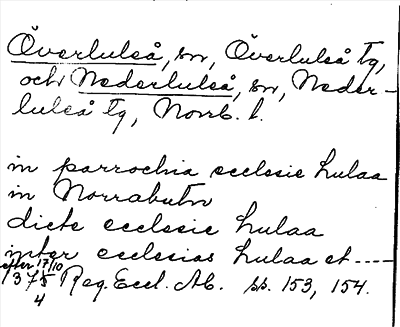 Överluleå, sn, Överluleå tg,
och Nederluleå, sn, Neder-
luleå tg, Norrb. l.
in parrochia ecclesie Lulaa
in Norrabutn
dicte ecclesie Lulaa
inter ecclesias Lulaa et ----
efter 17/10
1375 Reg. Eccl. Ab. ss. 153, 154.
4